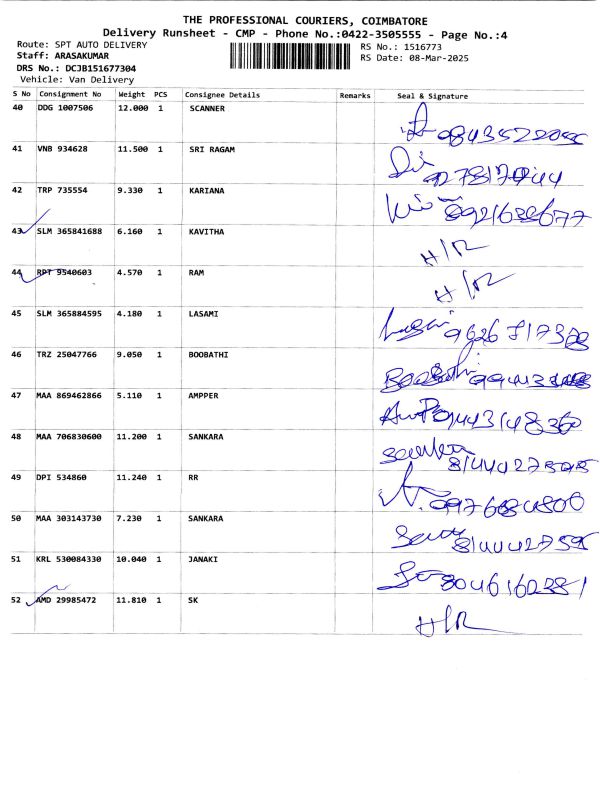 THE PROFESSIONAL COURIERS, COIMBATORE
Delivery Runsheet - CMP - Phone No.:0422-3505555 - Page No.:4
Route: SPT AUTO DELIVERY
RS No.: 1516773
Staff: ARASAKUMAR
RS Date: 08-Mar-2025
DRS No.: DCJB151677304
Vehicle: Van Delivery
S No Consignment No Weight PCS Consignee Details Remarks Seal & Signature
40 DDG 1007506 12.000 1 SCANNER
41 VNB 934628 11.500 1 SRI RAGAM
42 TRP 735554 9.330 1 KARIANA
43 SLM 365841688 6.160 1 KAVITHA H/R
44 RPT 9540603 4.570 1 RAM H/R
45 SLM 365884595 4.180 1 LASAMI
46 TRZ 25047766 9.050 1 BOOBATHI
47 MAA 869462866 5.110 1 AMPPER
48 MAA 706830600 11.200 1 SANKARA
49 DPI 534860 11.240 1 RR
50 MAA 303143730 7.230 1 SANKARA
51 KRL 530084330 10.040 1 JANAKI
52 AMD 29985472 11.810 1 SK H/R